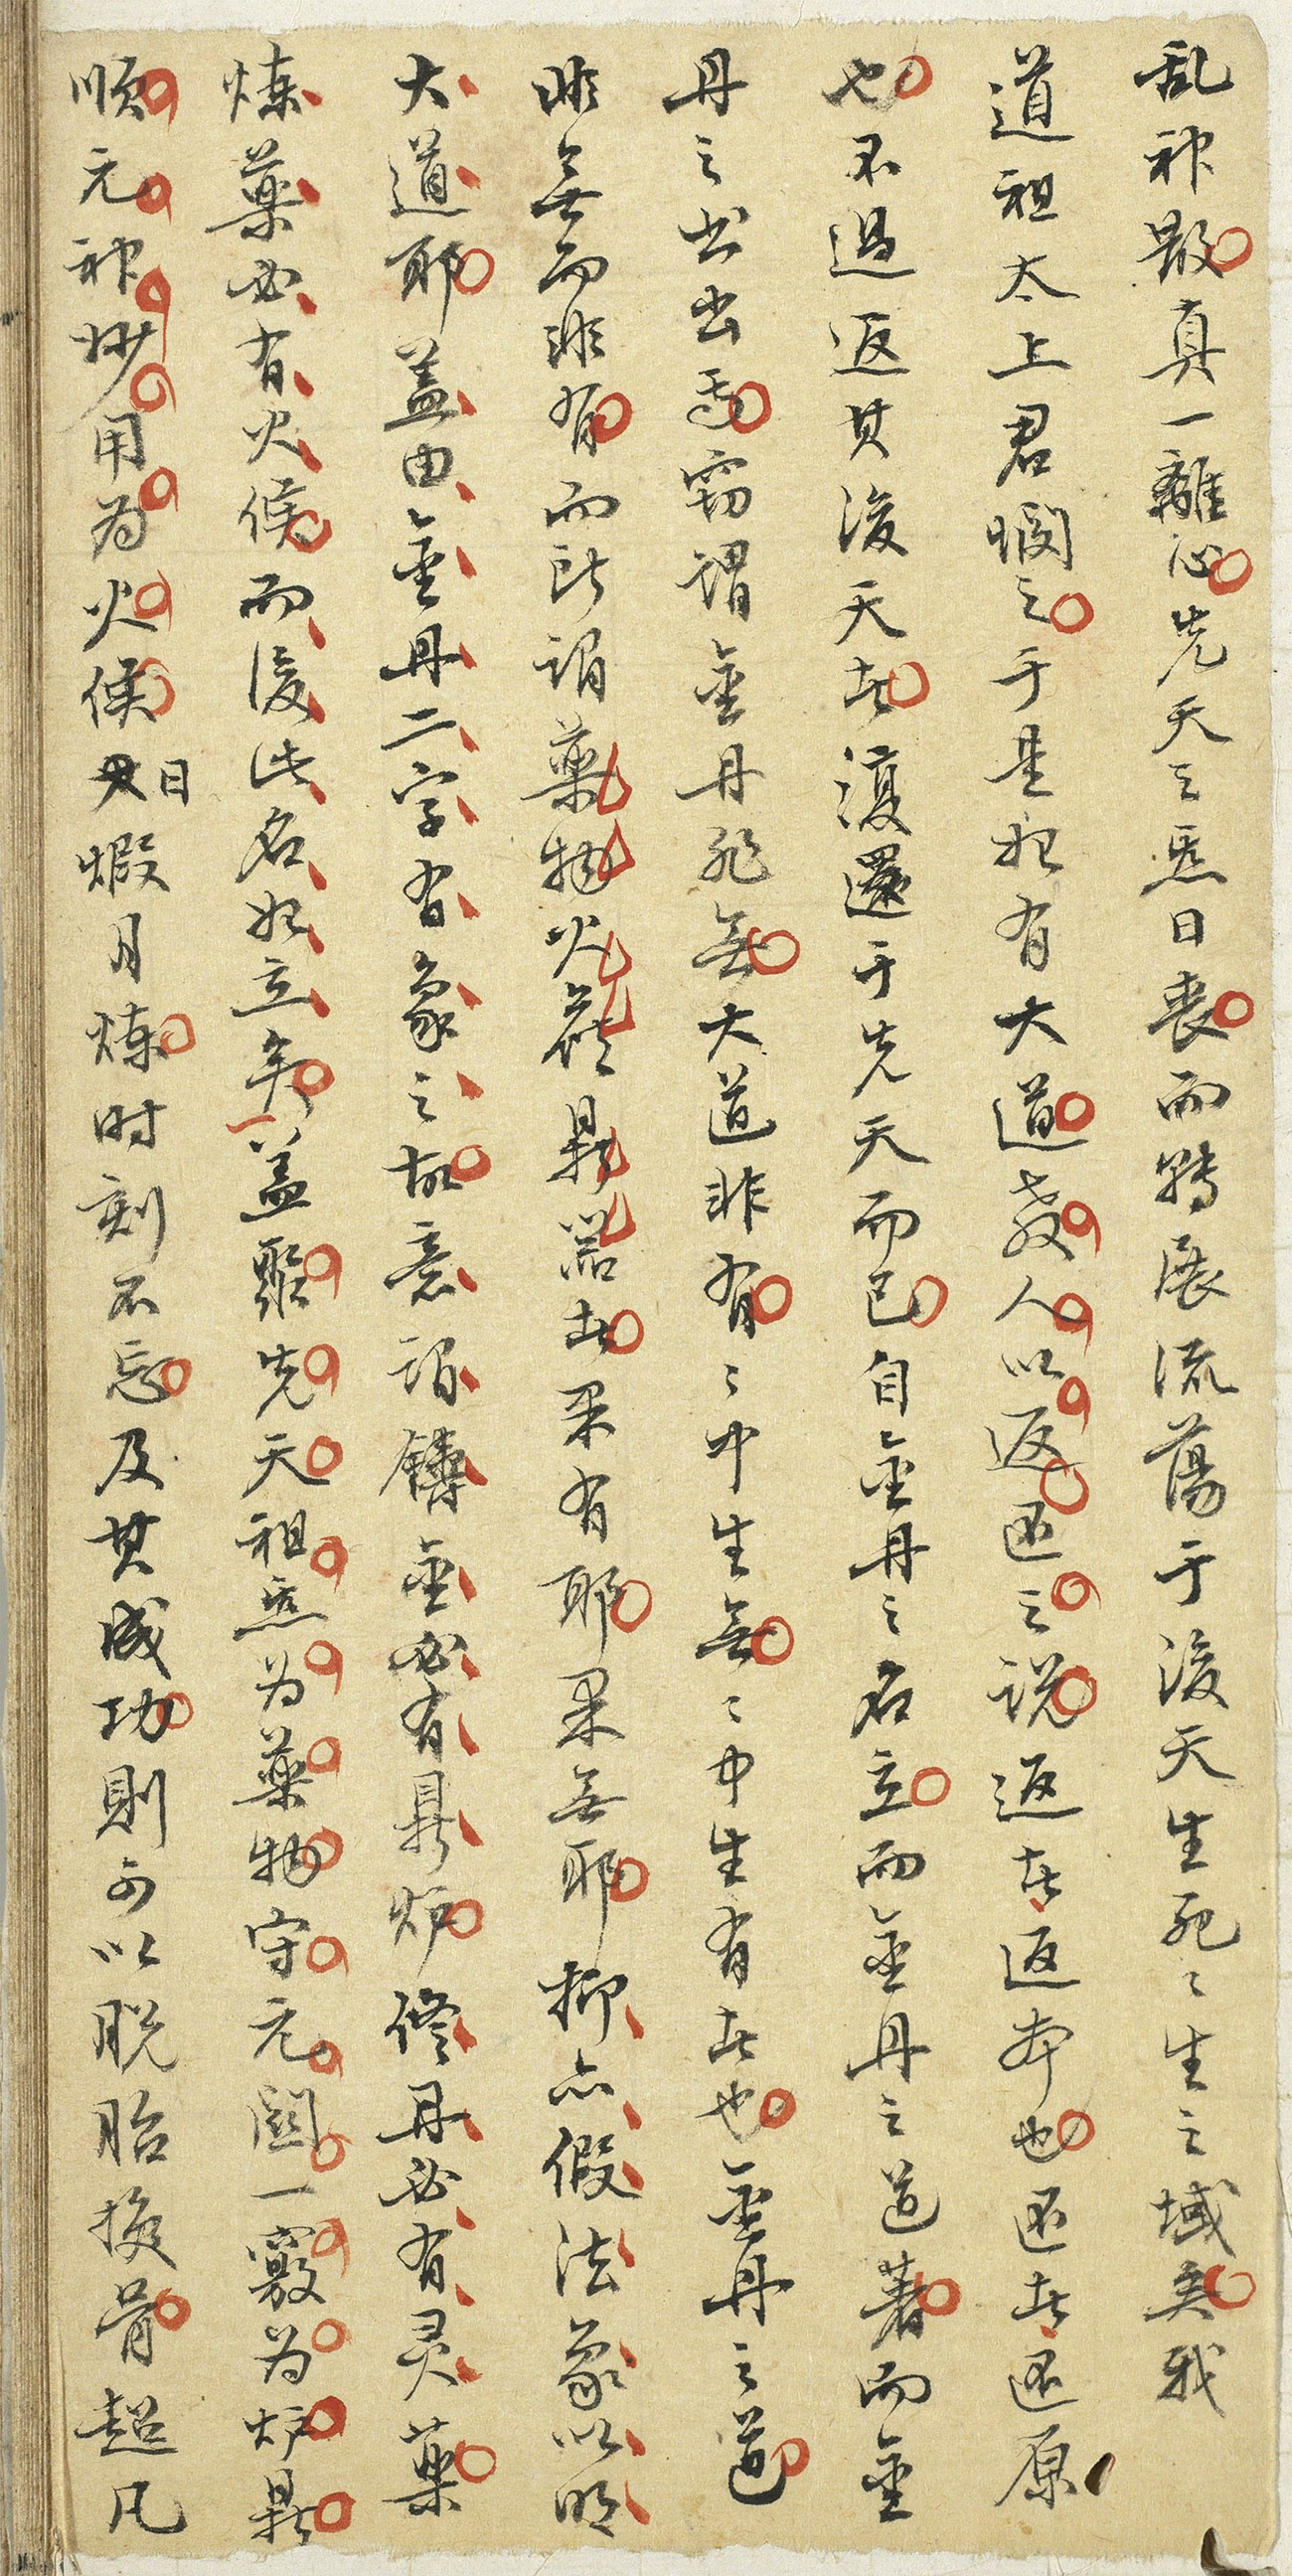 乱神散真一離心先天之炁日丧而轉展流蕩于後天生死〻生之域矣我
道祖太上君憫之于是始有大道教人以返还之説返者返本也还者还原
也不過返其後天者復還于先天而已自金丹之名立而金丹之道著而金
丹之書出焉窃謂金丹非無大道非有〻中生無〻中生有者也金丹之道
非無而非有而所謂藥物火候鼎器者果有耶果無耶抑亦假法象以明
大道耶盖由金丹二字有象之故意謂鑄金必有鼎炉修丹必有灵藥
炼藥必有火候而後此名始立矣盖聚先天祖炁为藥物守元関一竅为炉鼎
順元神妙用为火候日煅月炼时刻不忘及其成功則可以脱胎換骨超凡